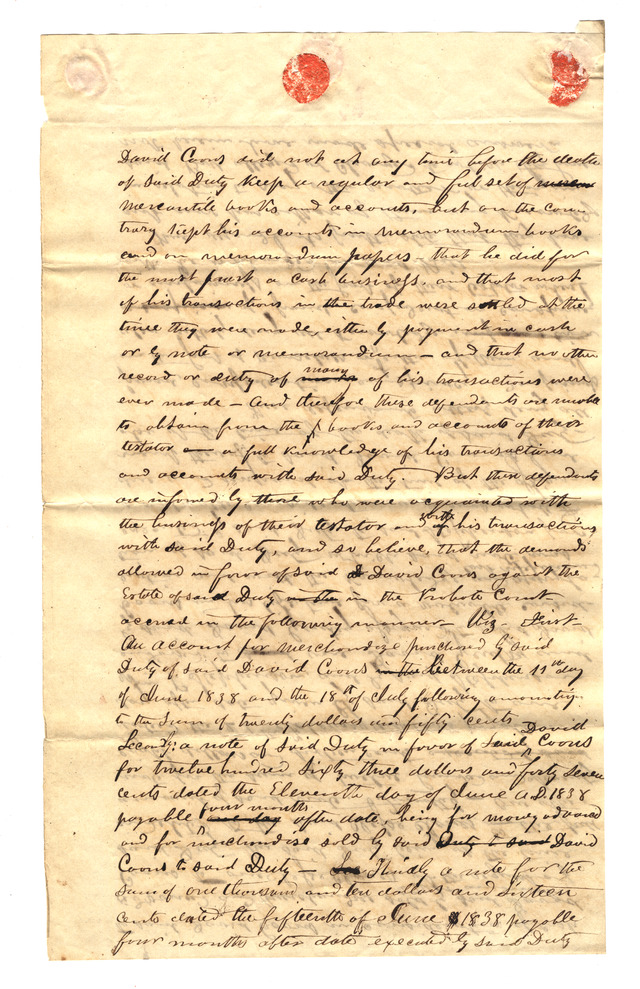 David Coons did not at any time before the death
of Said Duty Keep a regular and full set of
Mercantile books and accounts, but on the Con
trary Kept his accounts in memorandum books
and on memorandum papers - that he did for
the most part a cash business, and that most
of his transactions in the trade were settled at the
time they were made, either by payment in cash
or by note or memorandum - and that no other
record or entry of many of his transactions were
ever made - And therefore these defendants are unable
to obtain from the books and accounts of their
testator a full Knowledge of his transactions
and accounts with said Duty. But these defendants
are informed by those who were acquainted with
the business of their testator and with his transactions
with said Duty, and so believe, that the demands
allowed in favor of said David Coons against the
Estate of said Duty in the in the Probate Court
accrued in the following manner - Viz - First
An account for merchandize purchased by said
Duty of said David Coons in the Between the 11th day
of June 1838 and the 18th of July following amounting
to the Sum of twenty dollars and fifty cents
Secondly; a note of Said Duty in favor of Said David Coons
for twelve hundred Sixty three dollars and forty seven
cents dated the Eleventh day of June A.D. 1838
payable one day four months after date, being for money advanced
and for merchandise sold by said Duty to said David
Coons to said Duty - Thirdly a note for the
Sum of one thousand and ten dollars and sixteen
cents dated the fifteenth of June 1838 payable
four months after date executed by said Duty